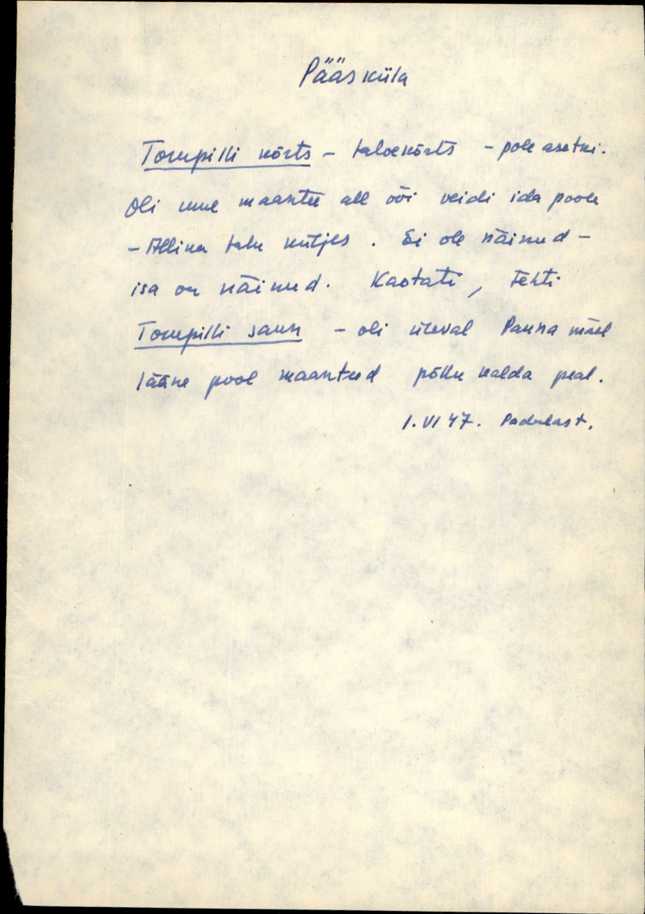 Pääsküla
Torupilli kõrts – talvekõrts – pole asetki.
Oli uue maantee all või veidi ida poole
– Allina talu kütjes. Ei ole näinud –
isa on näinud. Kaotati, tehti
Torupilli saun – oli üleval Panna mäel
lääne pool maanteed põllu kalda peal.
1. VI 47. Padulast.